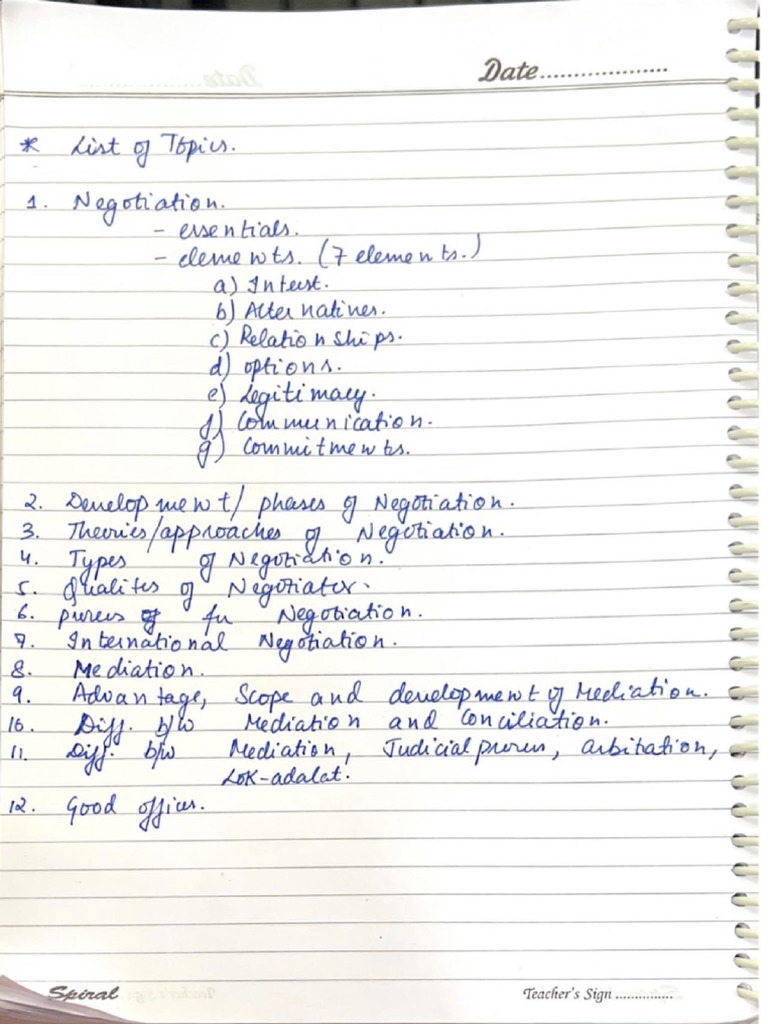 Date..................
* List of Topics.
1. Negotiation.
- essentials.
- elements. (7 elements.)
a) Interest.
b) Alternatives.
c) Relationships.
d) options.
e) Legitimacy.
f) Communication.
g) Commitments.
2. Development/ phases of Negotiation.
3. Theories/approaches of Negotiation.
4. Types of Negotiation.
5. Qualites of Negotiator.
6. process for Negotiation.
7. International Negotiation.
8. Mediation.
9. Advantage, Scope and development of Mediation.
10. Diff. b/w Mediation and Conciliation.
11. Diff. b/w Mediation, Judicial process, arbitation,
LOK-adalat.
12. Good offices.
Spiral Teacher's Sign ...............